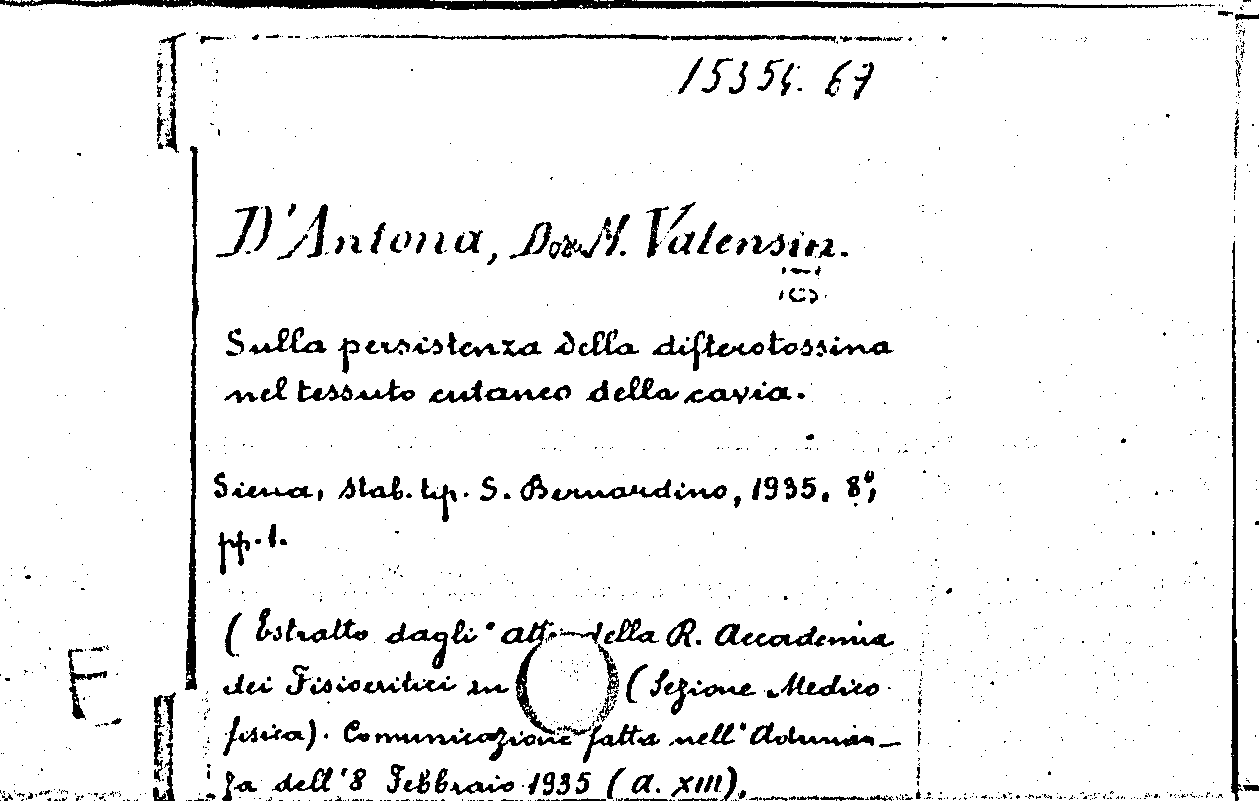 15354. 67
D'Antona, Dor M. Valensin.
Sulla persistenza della difterotossina
nel tessuto cutaneo della cavia.
Siena, stab. tip. S. Bernardino, 1935. 8°,
pp. 1.
( Estratto dagli "atti della R. Accademia
dei Fisiocritici in (Sezione Medico
fisica). Comunicazione fatta nell'Adunan_
za dell'8 Febbraio 1935 (A. XIII).
E